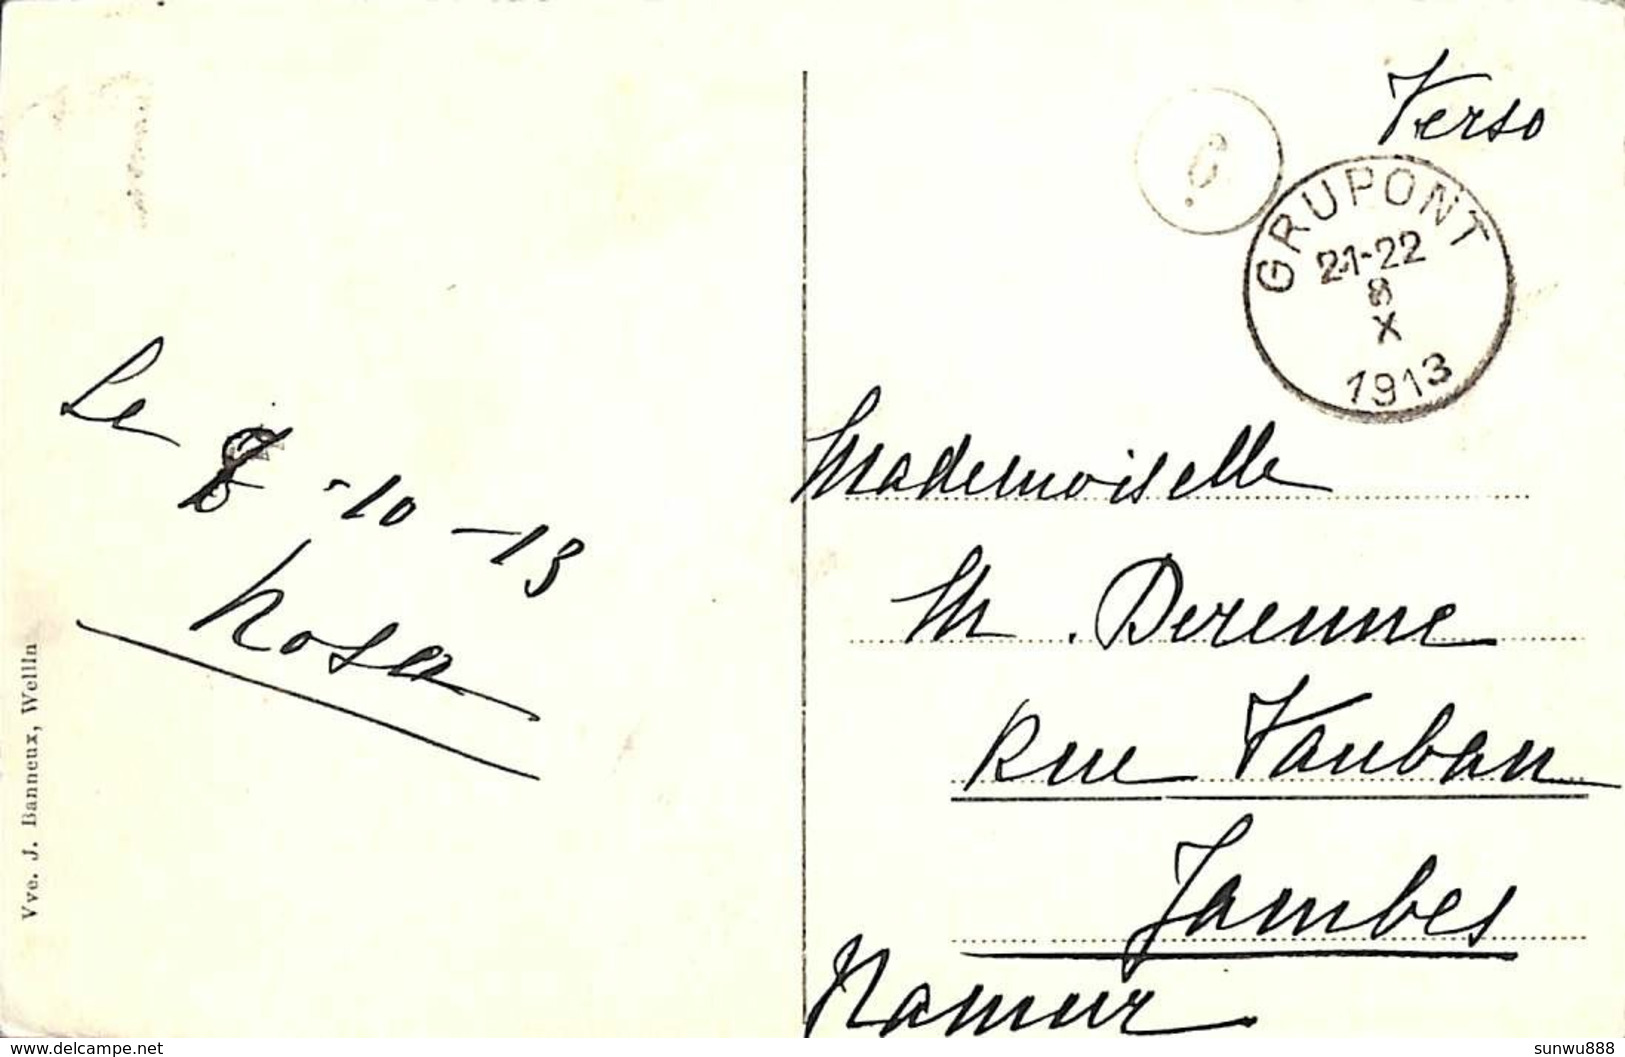 Verso
6
GRUPONT
21-22
8
X
1913
Le 8 -10 -13
Rosa
Mademoiselle
M. Derenne
Rue Vauban
Jambes
Namur
Vve. J. Banneux, Wellin
www.delcampe.net
sunwu888